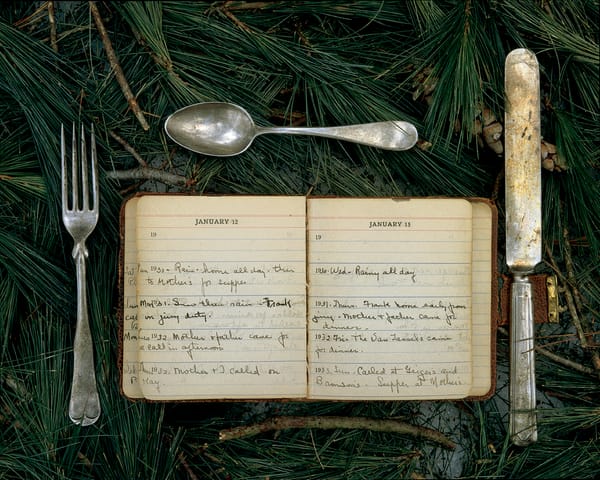 JANUARY 12
19
1930 - Rain - home all day - then
to Mother's for supper
1931. Snow then rain - Frank
call on jury duty.
1932. Mother & father came for
a call in afternoon
Mother & I called on
May
JANUARY 13
19
1930 - Wed - Rainy all day
1931. Frank home early from
jury - Mother & father came for
dinner.
1932 The Van came
for dinner.
1933. Called at Geigers and
Supper at Mothers